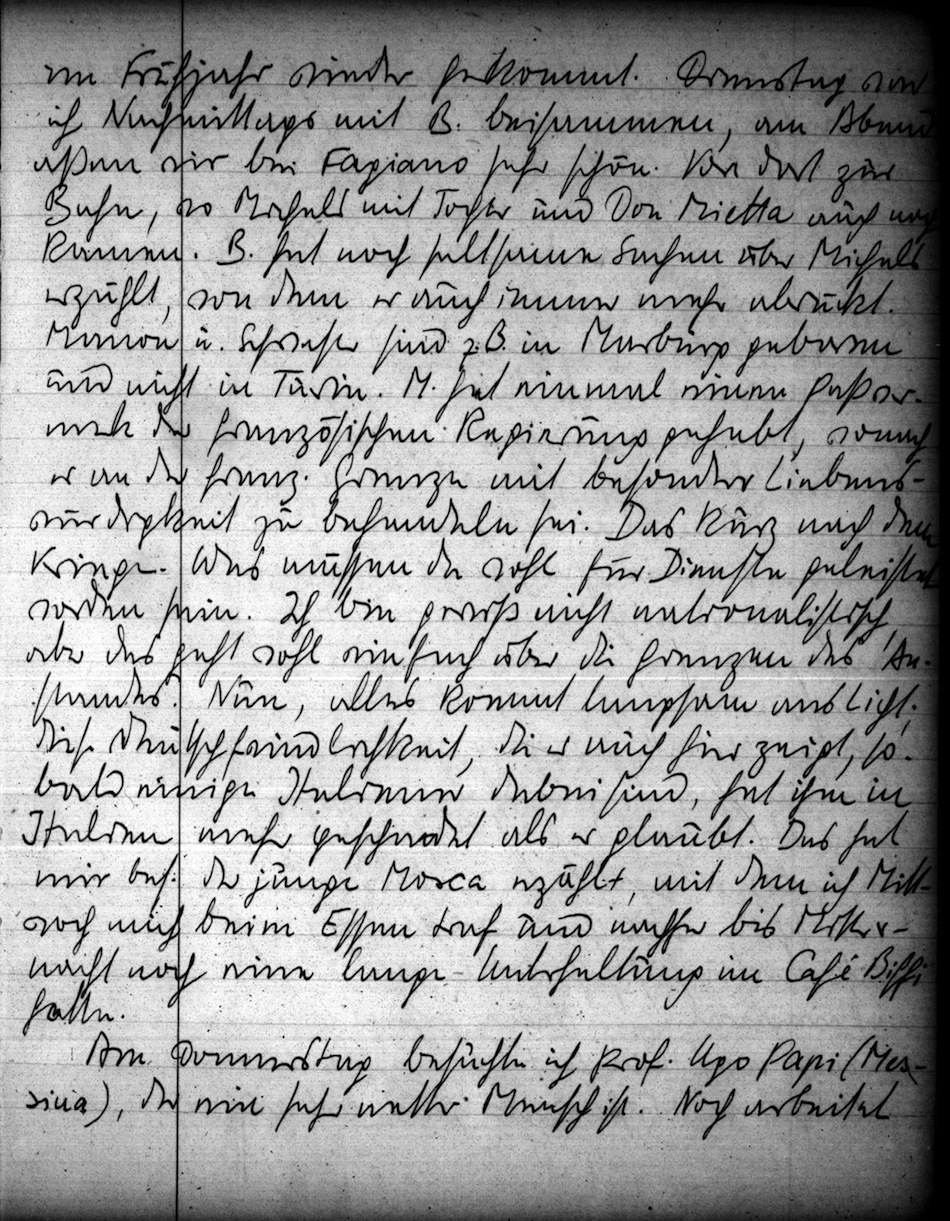 im Frühjahr wieder herkommt. Dienstag war
ich Nachmittags mit B. beisammen, am Abend
aßen wir bei Fagiano sehr schön. Von dort zur
Bahn, wo Michels mit Tochter und Don Mietta auch noch
kamen. B. hat noch seltsame Sachen über Michels
erzählt, von dem er auch immer mehr abrückt.
Manon u. Schwester sind z.B. in Marburg geboren
und nicht in Turin. M. hat einmal einen Paßver-
merk der französischen Regierung gehabt, wonach
er an der franz. Grenze mit besonderer Liebens-
würdigkeit zu behandeln sei. Das kurz nach dem
Kriege. Was müssen da wohl für Dienste geleistet
worden sein. Ich bin gewiß nicht nationalistisch,
aber das geht wohl einfach über die Grenzen des An-
standes. Nun, alles kommt langsam ans Licht;
diese Deutschfeindlichkeit, die er auch hier zeigt, so-
bald einige Italiener dabei sind, hat ihm in
Italien mehr geschadet als er glaubt. Das hat
mir bes. der junge Mosca erzählt, mit dem ich Mitt-
woch mich beim Essen traf und nachher bis Mitter-
nacht noch eine lange Unterhaltung im Café Biffi
hatte.
Am Donnerstag besuchte ich Prof. Ugo Papi (Mes-
sina), der ein sehr netter Mensch ist. Noch arbeitet